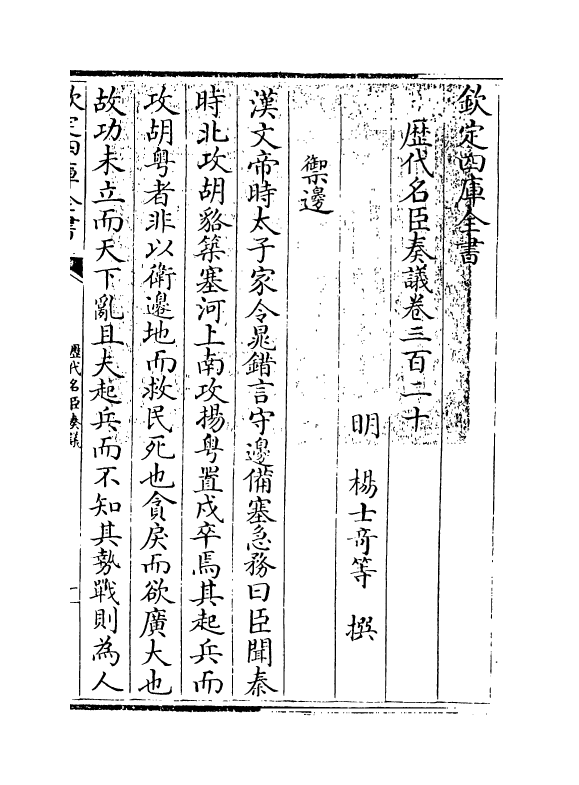 欽定四庫全書
歴代名臣奏議卷三百二十
明 楊士奇等 撰
禦邊
漢文帝時太子家令晁錯言守邊備塞急務曰臣聞秦
時北攻胡貉築塞河上南攻揚粤置戍卒焉其起兵而
攻胡粤者非以衛邊地而救民死也貪戾而欲廣大也
故功未立而天下亂且夫起兵而不知其勢戰則為人
欽定四庫全書
歴代名臣奏議
一